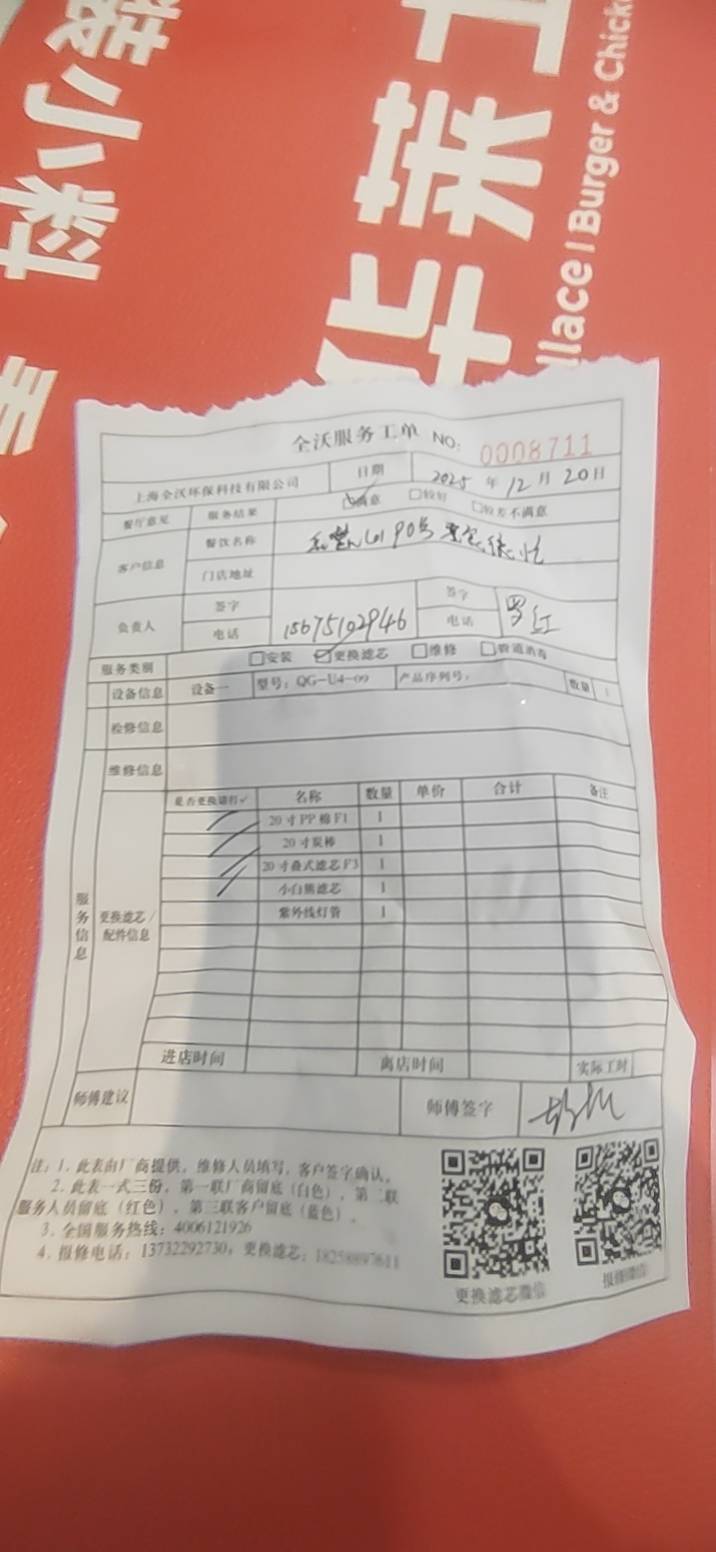 装小料
华莱士
llace | Burger & Chick
全沃服务工单 NO: 0008711
上海全沃环保科技有限公司 日期 2025年12月20日
餐厅意见 服务结果 ☑满意 □较好 □较差不满意
客户信息 餐饮名称 90号
门店地址
负责人 签字 签字
电话 15675102946 电话 罗红
服务类别 □安装 ☑更换滤芯 □维修 □管道消毒
设备信息 设备一 型号：QG-U4-09 产品序列号： 数量 1
检修信息
维修信息
服务信息
更换滤芯/配件信息
是否更换请打✓ 名称 数量 单价 合计 备注
20寸PP棉F1 1
20寸炭棒 1
20寸叠式滤芯F3 1
小白熊滤芯 1
紫外线灯管 1
进店时间 离店时间 实际工时
师傅建议 师傅签字
注：1. 此表由厂商提供，维修人员填写，客户签字确认。
2. 此表一式三份，第一联厂商留底（白色），第二联
服务人员留底（红色），第三联客户留底（蓝色）。
3. 全国服务热线：4006121926
4. 报修电话：13732292730；更换滤芯：18258897611
更换滤芯微信
报修微信